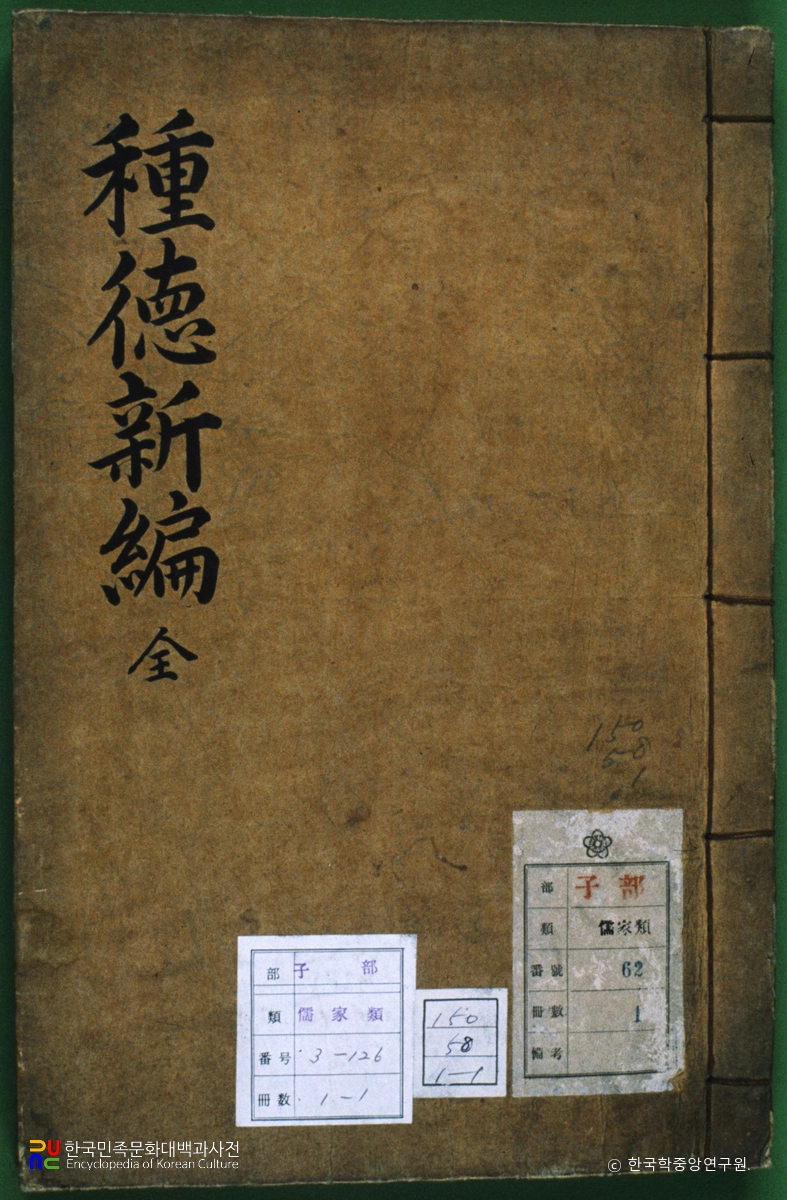 種德新編
全
150
58
1
部 子部
類 儒家類
番號 62
冊數 1
備考
部 子部
類 儒家類
番号 3-126
冊數 1-1
150
58
1-1
한국민족문화대백과사전
Encyclopedia of Korean Culture
© 한국학중앙연구원.